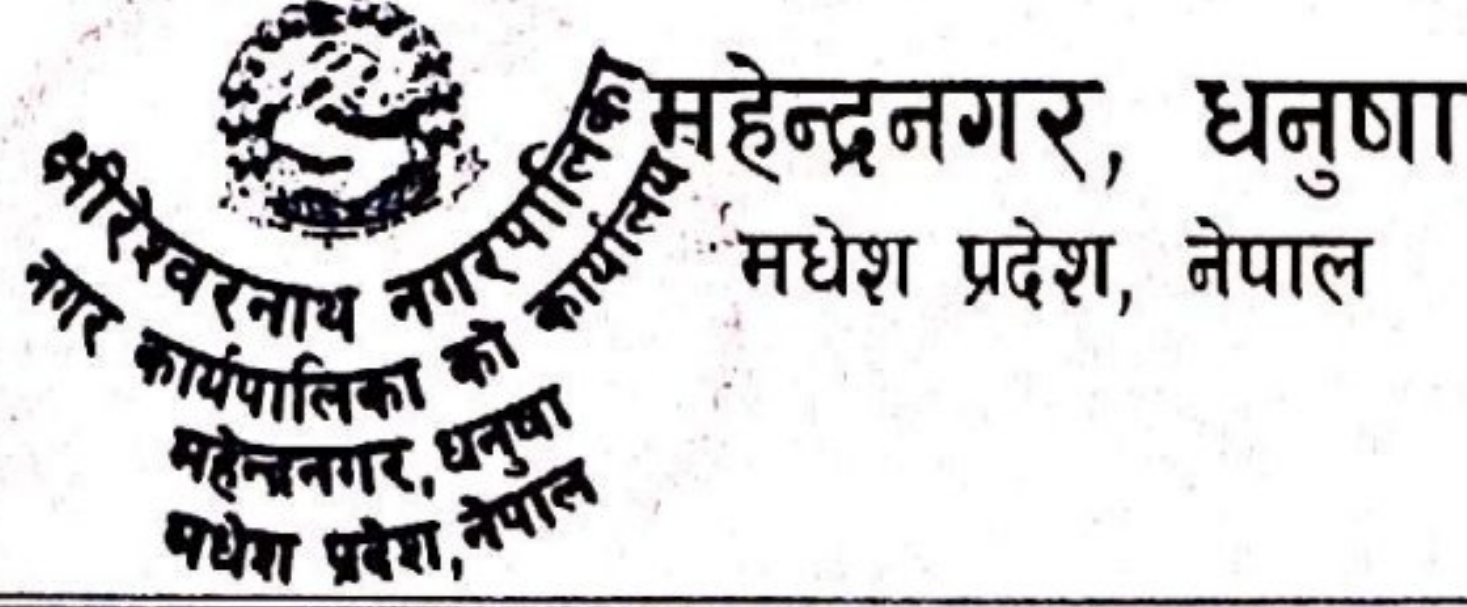 महेन्द्रनगर, धनुषा
मधेश प्रदेश, नेपाल
क्षीरेश्वरनाथ नगरपालिका
नगर कार्यपालिका को कार्यालय
महेन्द्रनगर, धनुषा
मधेश प्रदेश, नेपाल